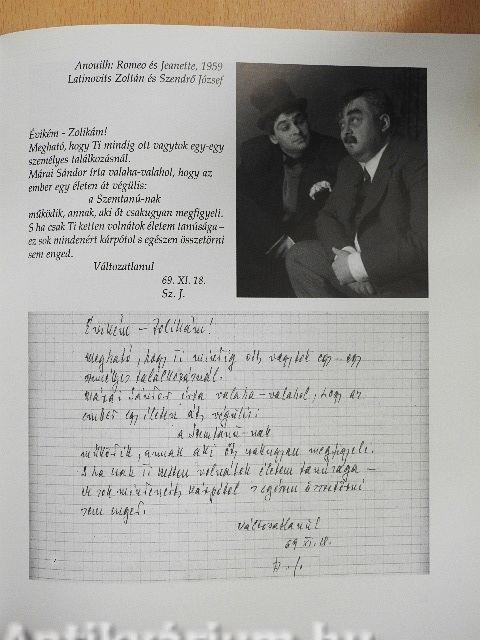 Anouilh: Romeo és Jeanette, 1959
Latinovits Zoltán és Szendrő József
Évikém - Zolikám!
Megható, hogy Ti mindig ott vagytok egy-egy
személyes találkozásnál.
Márai Sándor írta valaha-valahol, hogy az
ember egy életen át végülis:
a Szemtanú-nak
működik, annak, aki őt csakugyan megfigyeli.
S ha csak Ti ketten volnátok életem tanúsága –
ez sok mindenért kárpótol s egészen összetörni
sem enged.
Változatlanul
69. XI. 18.
Sz. J.
Évikém – Zolikám!
Megható, hogy Ti mindig ott vagytok egy-egy
személyes találkozásnál.
Márai Sándor írta valaha-valahol, hogy az
ember egy életen át végülis:
a Szemtanú-nak
működik, annak aki őt csakugyan megfigyeli.
S ha csak Ti ketten volnátok életem tanúsága –
ez sok mindenért kárpótol s egészen összetörni
sem enged.
Változatlanul
69 XI. 18.
Antikvárium.hu